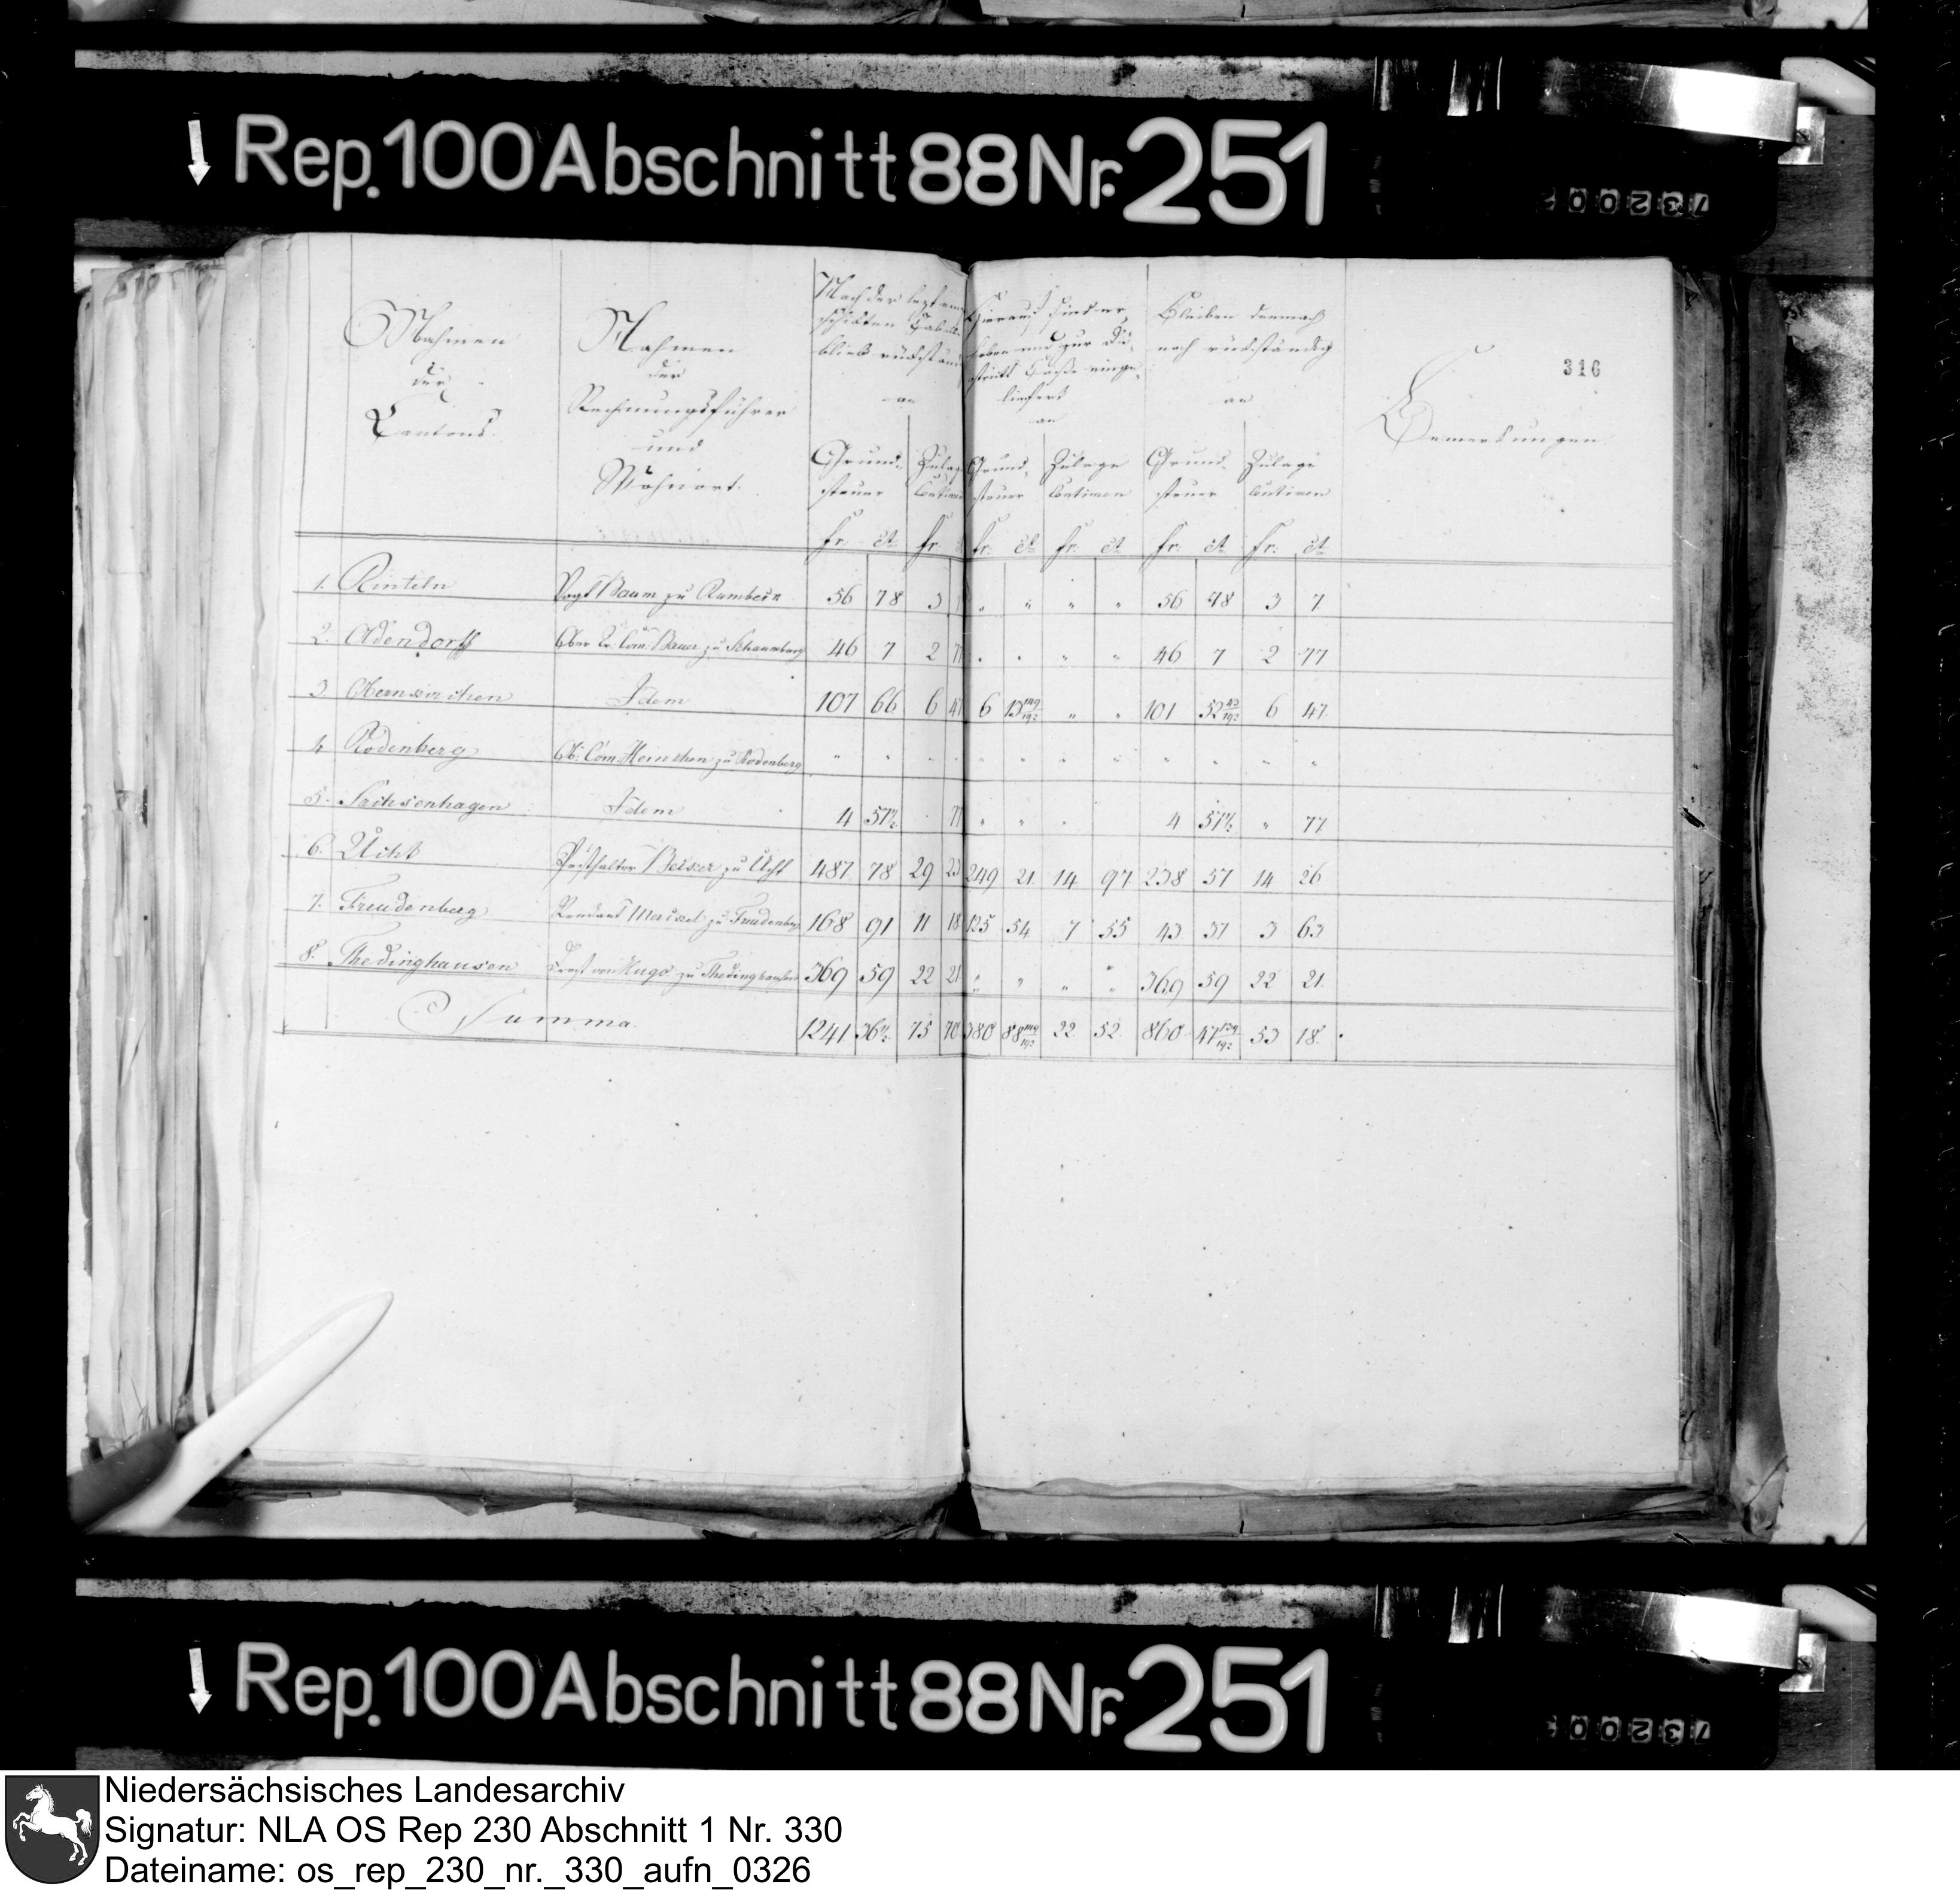 Rep. 100 Abschnitt 88 Nr. 251
73200
316
Nahmen
der
Cantons.
Nahmen
der
Rechnungsführer
und
Wohnort.
Nach der letzt
blieb rückständ
an
Grund-
steuer
Zulag
Centimen
Hieraus sind er
hoben und zur Di-
stricts Casse einge-
liefert
an
Grund-
steuer
Zulage
Centimen
Bleiben demnach
noch rückständig
an
Grund-
steuer
Zulage
Centimen
Bemerkungen
fr. ct. fr. fr. ct. fr. ct. fr. ct. fr. ct.
1. Rinteln Vogt Baum zu Rumbeck 56 78 3 „ „ „ „ 56 78 3 7
2. Odendorff Ober Gr. Com. Bauer zu Schaumburg 46 7 2 77 „ „ „ „ 46 7 2 77
3. Obernkirchen Idem 107 66 6 47 6 13 149/192 „ „ 101 52 43/192 6 47
4. Rodenberg Ob. Com. Heinichen zu Rodenberg „ „ „ „ „ „ „ „ „ „ „ „
5. Sachsenhagen Idem 4 57½ „ 77 „ „ „ 4 57½ „ 77
6. Ucht Posthalter Beiszer zu Ucht 487 78 29 23 249 21 14 97 238 57 14 26
7. Freudenberg Rendant Meiszel zu Freudenberg 168 91 11 18 125 54 7 55 43 37 3 63
8. Thedinghausen Drost von Hugo zu Thedinghausen 369 59 22 21 „ „ „ „ 369 59 22 21
Summa 1241 36½ 75 70 380 88 149/192 22 52 860 47 139/192 53 18
Rep. 100 Abschnitt 88 Nr. 251
73200
Niedersächsisches Landesarchiv
Signatur: NLA OS Rep 230 Abschnitt 1 Nr. 330
Dateiname: os_rep_230_nr._330_aufn_0326